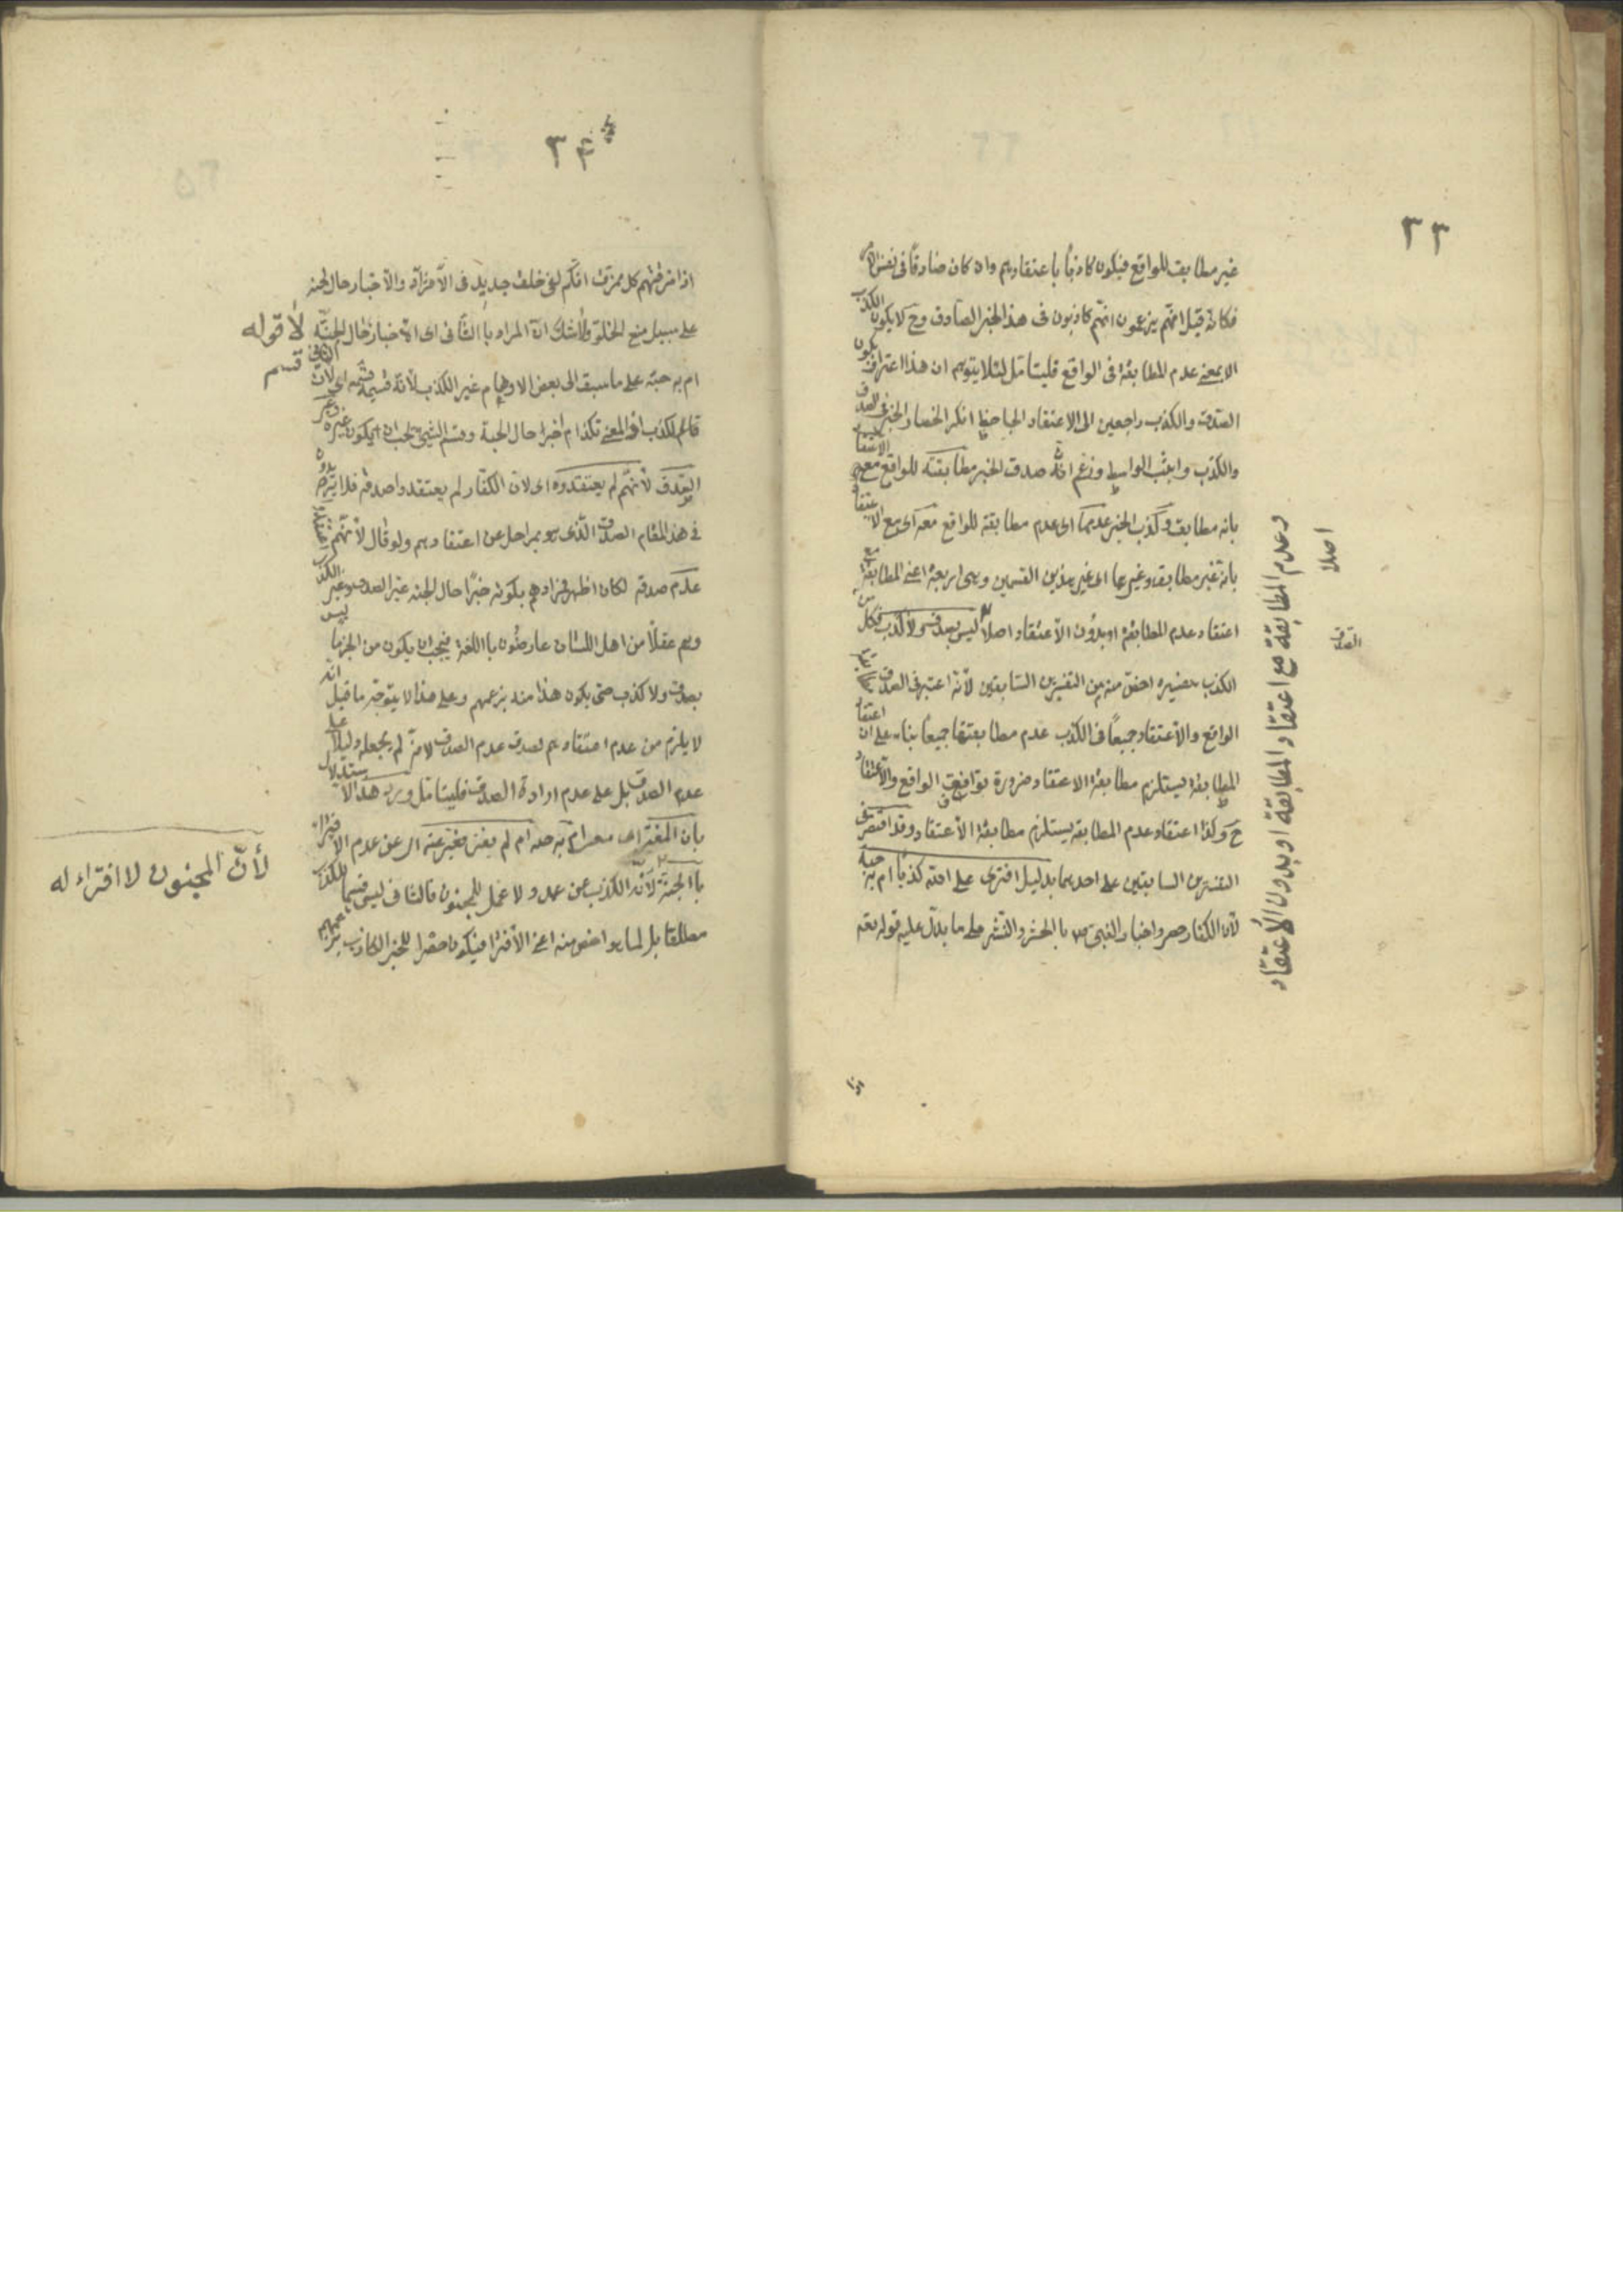 ٣٣
غير مطابق للواقع فيكون كاذبا باعتقادهم وان كان صادقا فى نفس الامر
فكانه قيل انهم يزعمون انهم كاذبون فى هذا الخبر الصادق وح لا يكون الكذب
الا بمعنى عدم المطابقة فى الواقع فليتامل لئلا يتوهم ان هذا اعتراف بكون
الصدق والكذب راجعين الى الاعتقاد الجاحظ انكر انحصار الخبر فى الصدق
والكذب واثبت الواسطة وزعم ان صدق الخبر مطابقته للواقع مع الاعتقاد
بانه مطابق وكذب الخبر عدمها اى عدم مطابقة للواقع معه اى مع الاعتقاد
بانه غير مطابق وغيرهما اى غير هذين القسمين وهى اربعة اعنى المطابقة مع
اعتقاد عدم المطابقة او بدون الاعتقاد اصلا ليس بصدق ولا كذب فكل من
الكذب بتفسيره اخص منه من التفسيرين السابقين لانه اعتبر فى الصدق
الواقع والاعتقاد جميعا فى الكذب عدم مطابقتها جميعا بناء على ان اعتقاد
المطابقة يستلزم مطابقة الاعتقاد ضرورة توافق الواقع والاعتقاد
ح وكذا اعتقاد عدم المطابقة يستلزم مطابقة الاعتقاد وقد اقتصر فى
التفسيرين السابقين على احدهما بدليل افترى على الله كذبا ام به جنة
لان الكفار حصروا اخبار النبى بالحشر والنشر على ما يدل عليه قوله تعه
وعدم المطابقة مع اعتقاد المطابقة او بدون الاعتقاد
اصلا
الصدق
اذا
٣٤
اذا مزقتهم كل ممزق انكم لفى خلق جديد فى الافتراء والاخبار حال الجنة
على سبيل منع الخلو ولاشك ان المراد بالثانى اى الاخبار حال الجنة
لا قوله
ام به جنة على ما سبق الى بعض الاوهام غير الكذب لانه قسيمه اى لان الثانى
قسم
الكذب اذ المعنى اكذب ام اخبر حال الجنة وقسيم الشئ يجب ان يكون غيره وغير
الصدق لانهم لم يعتقدوه اى لان الكفار لم يعتقدوا صدقه فلا يريدوه
فى هذا المقام الصدق الذى هو بمراحل عن اعتقادهم ولو قال لانهم اعتقدوا
عدم صدقه لكان اظهر فمرادهم بكونه خبرا حال الجنه غير الصدق وغير الكذب
وهم عقلا من اهل اللسان عارفون باللغة فيجب ان يكون من الخبر ما ليس
بصدق ولا كذب حتى يكون هذا منه بزعمهم وعلى هذا لا يتوجه ما قيل انه
لا يلزم من عدم اعتقادهم لصدق عدم الصدق لانه لم يجعله دليلا على
عدم الصدق بل على عدم ارادة الصدق فليتامل ورد هذا الاستدلال
بان المعنى اى معنى ام به جنه ام لم يفتر فعبر عنه اى عن عدم الافتراء
بالجنة لانه الكذب عن عمد ولا عمد للمجنون فالثانى ليس قسيما للكذب
لأنّ المجنون لا افتراء له
مطلقا بل لما هو اخص منه اعنى الافتراء فيكون حصرا للخبر الكاذب بزعمهم